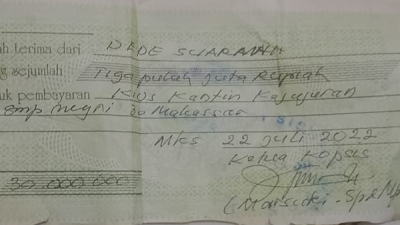 ah terima dari DEDE SUARANAH
g sejumlah Tiga puluh juta Rupiah
uk pembayaran Kios Kantin Kejujuran
smp negri 30 Makassar
Mks 22 juli 2022
Ketua Kopsis
30.000.000
(Marsuki. Spd